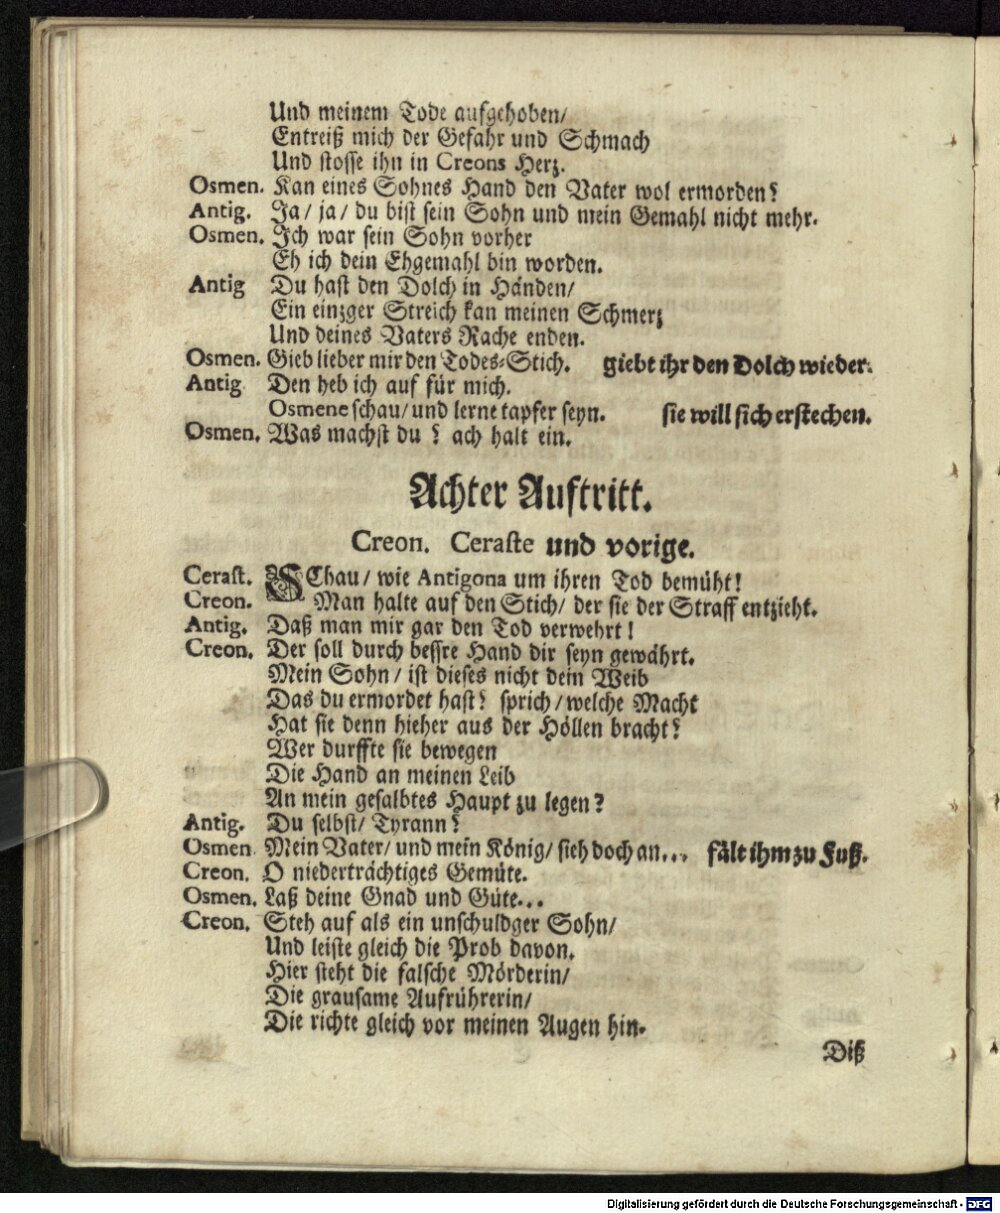 Und meinem Tode aufgehoben/
Entreiß mich der Gefahr und Schmach
Und stosse ihn in Creons Herz.
Osmen. Kan eines Sohnes Hand den Vater wol ermorden?
Antig. Ja/ ja/ du bist sein Sohn und mein Gemahl nicht mehr.
Osmen. Ich war sein Sohn vorher
Eh ich dein Ehgemahl bin worden.
Antig Du hast den Dolch in Händen/
Ein einzger Streich kan meinen Schmerz
Und deines Vaters Rache enden.
Osmen. Gieb lieber mir den Todes-Stich. giebt ihr den Dolch wieder.
Antig Den heb ich auf für mich.
Osmene schau/ und lerne tapfer seyn. sie will sich erstechen.
Osmen. Was machst du? ach halt ein.
Achter Auftritt.
Creon. Ceraste und vorige.
Cerast. SChau/ wie Antigona um ihren Tod bemüht!
Creon. Man halte auf den Stich/ der sie der Straff entzieht.
Antig. Daß man mir gar den Tod verwehrt!
Creon. Der soll durch bessre Hand dir seyn gewährt.
Mein Sohn/ ist dieses nicht dein Weib
Das du ermordet hast? sprich/ welche Macht
Hat sie denn hieher aus der Höllen bracht?
Wer durffte sie bewegen
Die Hand an meinen Leib
An mein gesalbtes Haupt zu legen?
Antig. Du selbst/ Tyrann?
Osmen. Mein Vater/ und mein König/ sieh doch an... fält ihm zu Fuß.
Creon. O niederträchtiges Gemüte.
Osmen. Laß deine Gnad und Güte...
Creon. Steh auf als ein unschuldger Sohn/
Und leiste gleich die Prob davon.
Hier steht die falsche Mörderin/
Die grausame Aufrührerin/
Die richte gleich vor meinen Augen hin.
Diß
Digitalisierung gefördert durch die Deutsche Forschungsgemeinschaft - DFG